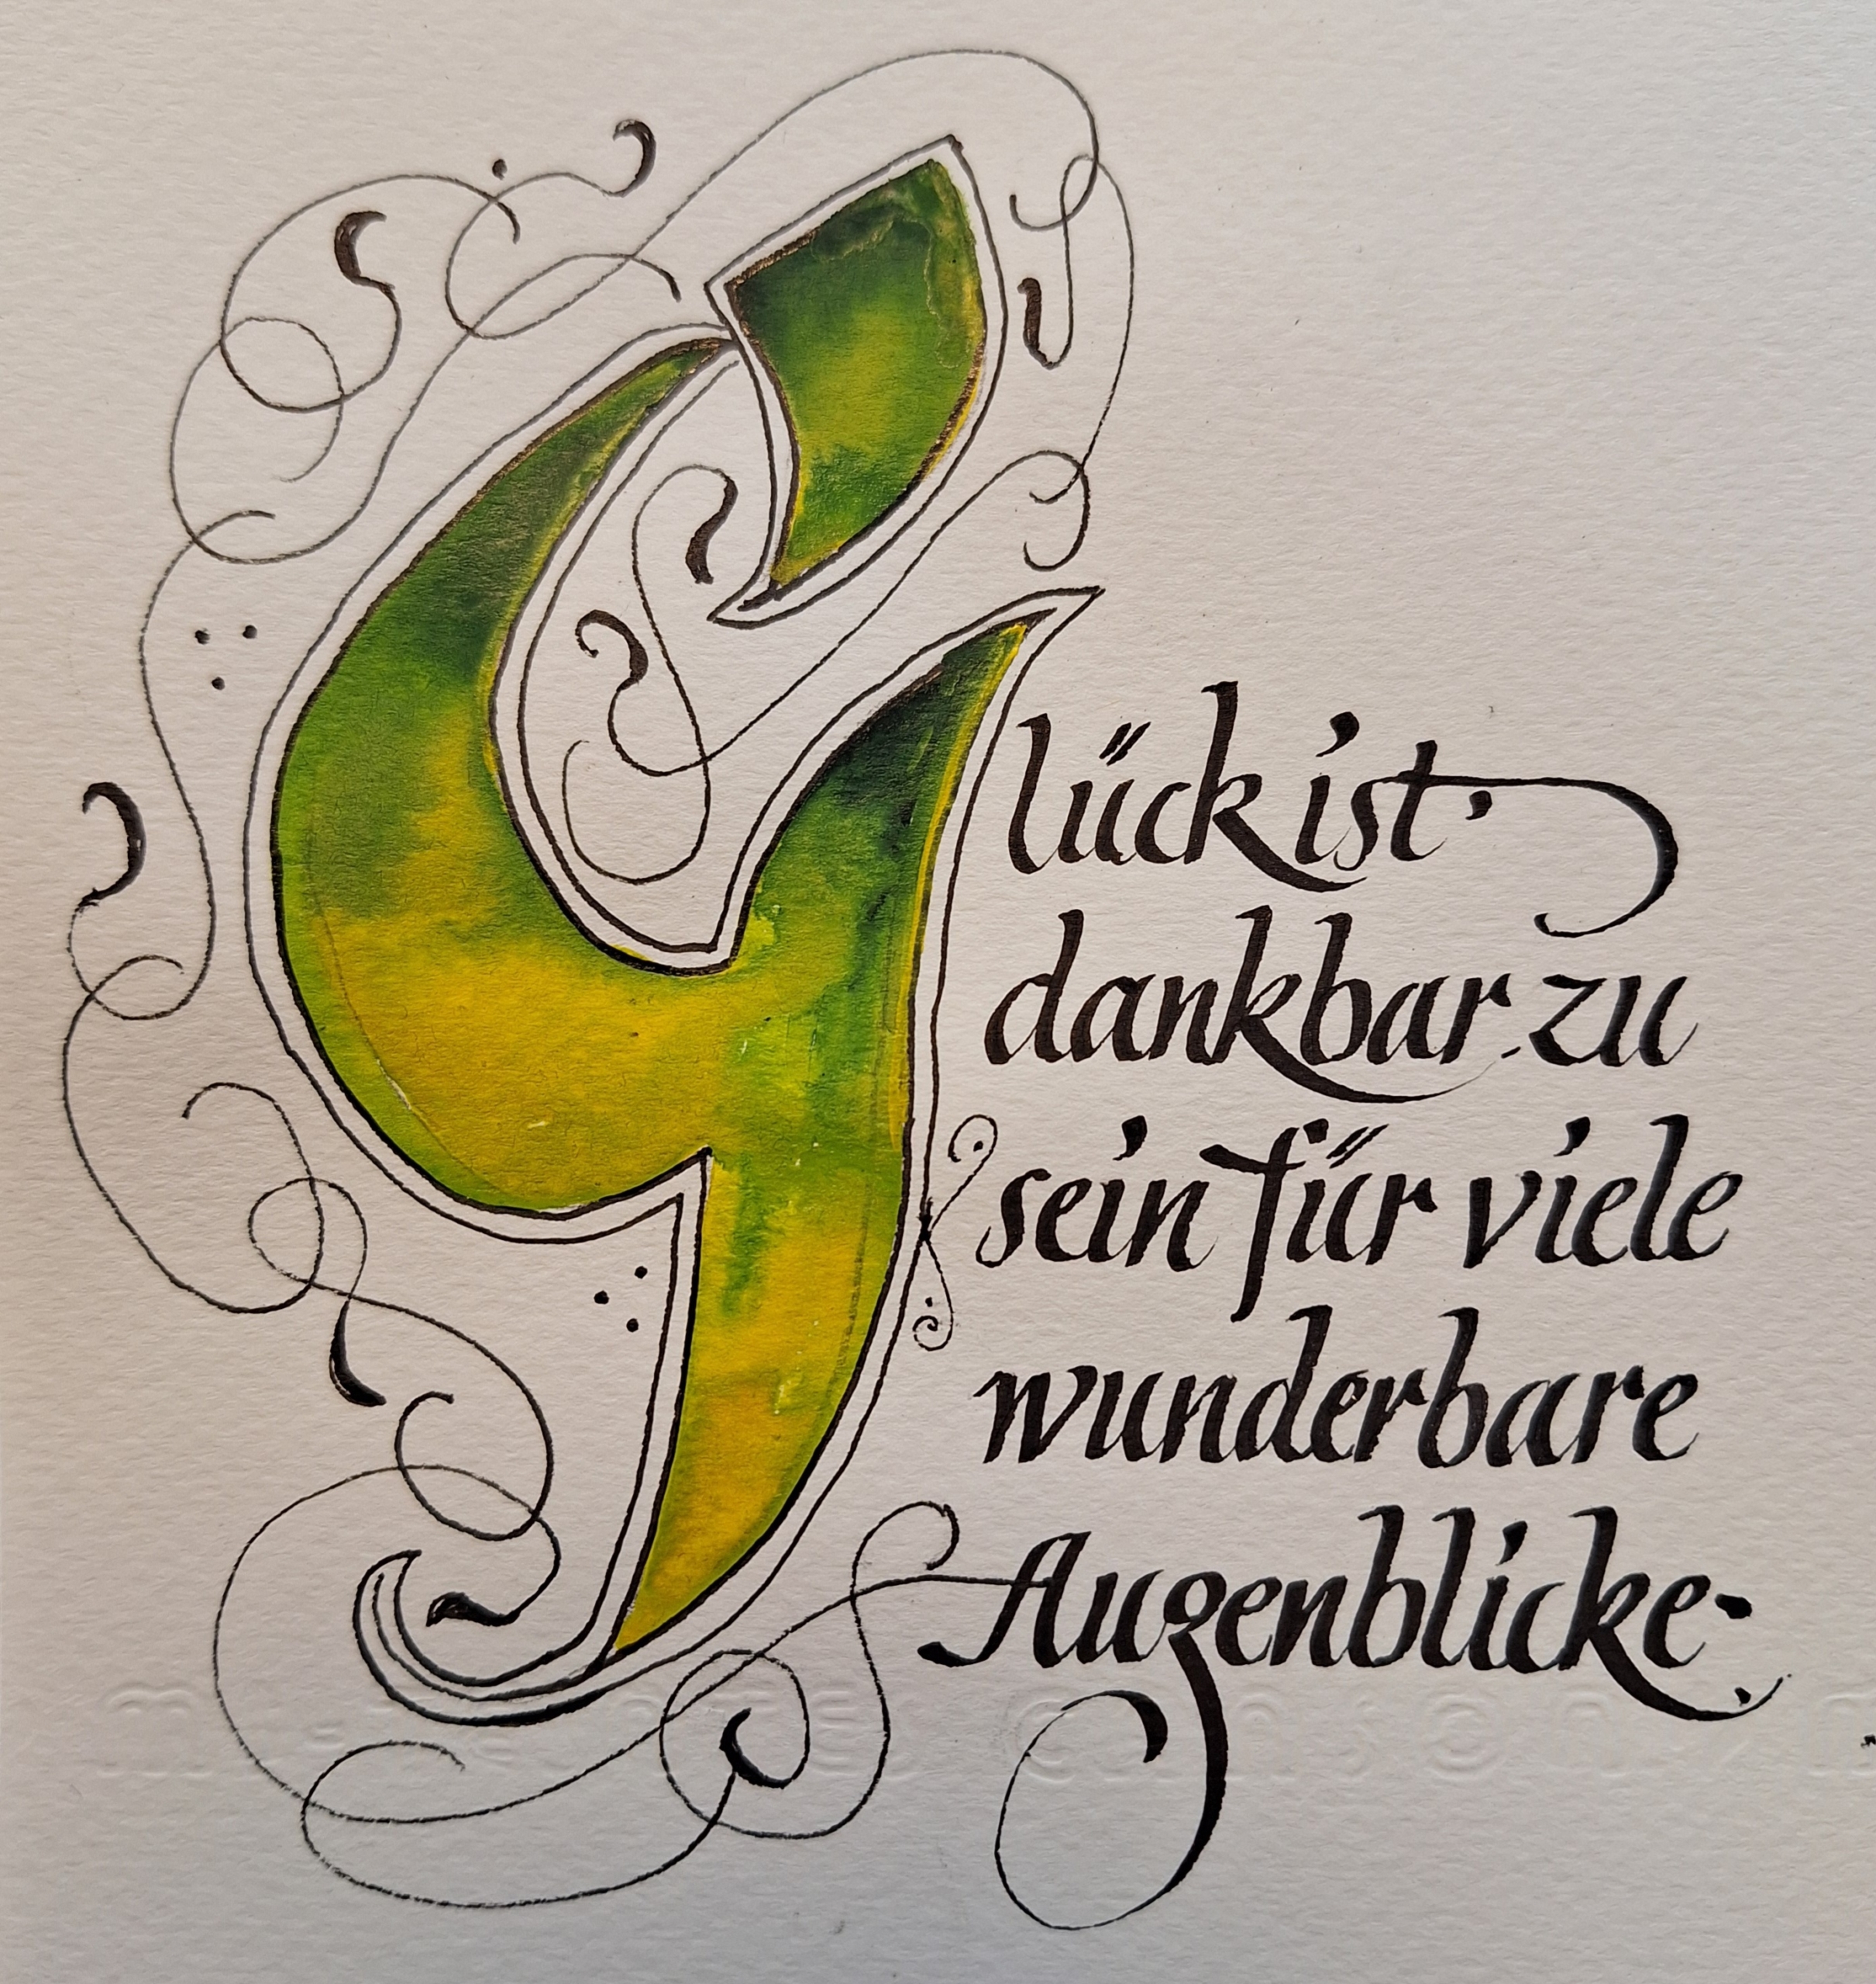 Glück ist
dankbar zu
sein für viele
wunderbare
Augenblicke.